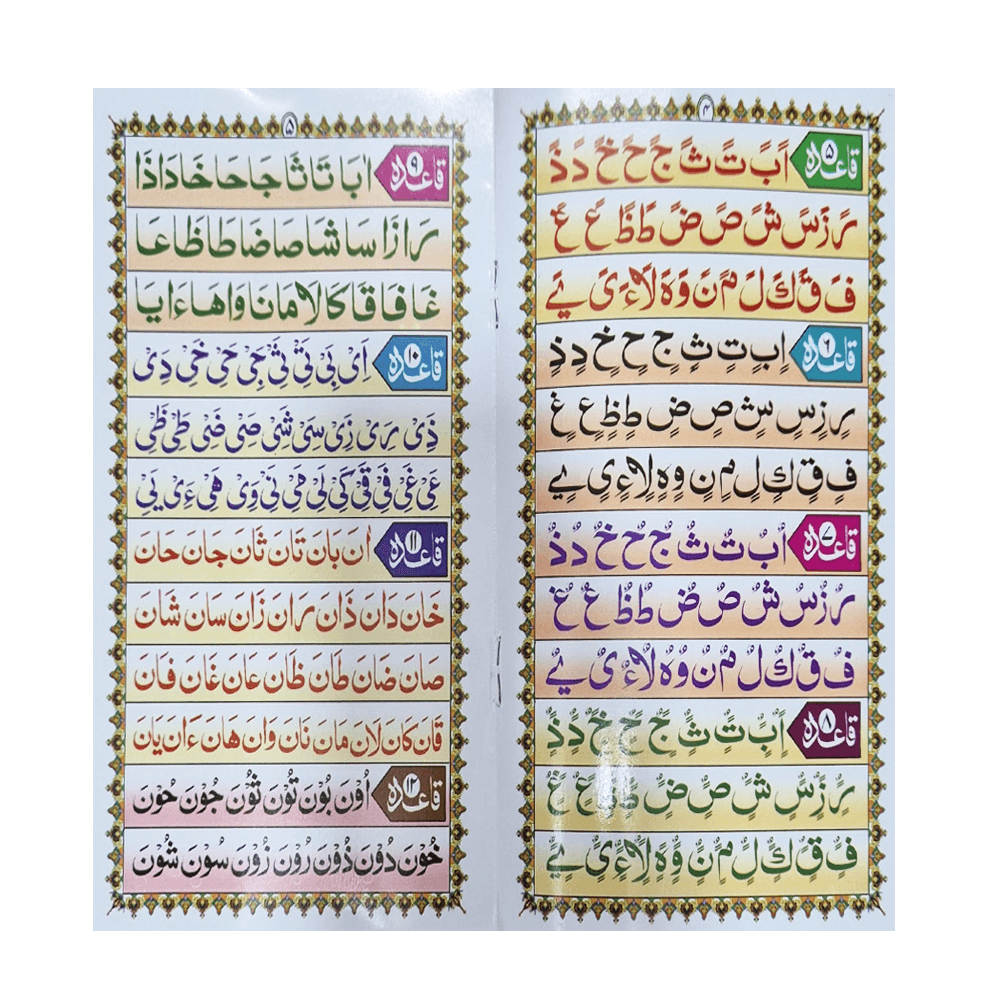 ۴
قاعدہ ۵ اً بً تً ثً جً حً خً دً ذً
رً زً سً شً صً ضً طً ظً عً غً
فً قً كً لً مً نً وً ہً لًا ءً یً ےً
قاعدہ ۶ اٍ بٍ تٍ ثٍ جٍ حٍ خٍ دٍ ذٍ
رٍ زٍ سٍ شٍ صٍ ضٍ طٍ ظٍ عٍ غٍ
فٍ قٍ كٍ لٍ مٍ نٍ وٍ ہٍ لٍا ءٍ یٍ ےٍ
قاعدہ ۷ اٌ بٌ تٌ ثٌ جٌ حٌ خٌ دٌ ذٌ
رٌ زٌ سٌ شٌ صٌ ضٌ طٌ ظٌ عٌ غٌ
فٌ قٌ كٌ لٌ مٌ نٌ وٌ ہٌ لٌا ءٌ یٌ ےٌ
قاعدہ ۸ اًٌٍ بًٌٍ تًٌٍ ثًٌٍ جًٌٍ حًٌٍ خًٌٍ دًٌٍ ذًٌٍ
رًٌٍ زًٌٍ سًٌٍ شًٌٍ صًٌٍ ضًٌٍ طًٌٍ ظًٌٍ عًٌٍ غًٌٍ
فًٌٍ قًٌٍ كًٌٍ لًٌٍ مًٌٍ نًٌٍ وًٌٍ ہًٌٍ لًٌٍا ءًٌٍ یًٌٍ ےًٌٍ
۵
قاعدہ ۹ اٰ بَا تَا ثَا جَا حَا خَا دَا ذَا
رَا زَا سَا شَا صَا ضَا طَا ظَا عَا
غَا فَا قَا كَا لَا مَا نَا وَا هَا ءَا یَا
قاعدہ ۱۰ اِیْ بِیْ تِیْ ثِیْ جِیْ حِیْ خِیْ دِیْ
ذِیْ رِیْ زِیْ سِیْ شِیْ صِیْ ضِیْ طِیْ ظِیْ
عِیْ غِیْ فِیْ قِیْ كِیْ لِیْ مِیْ نِیْ وِیْ هِیْ ءِیْ یِیْ
قاعدہ ۱۱ اٰنَ بَانَ تَانَ ثَانَ جَانَ حَانَ
خَانَ دَانَ ذَانَ رَانَ زَانَ سَانَ شَانَ
صَانَ ضَانَ طَانَ ظَانَ عَانَ غَانَ فَانَ
قَانَ كَانَ لَانَ مَانَ نَانَ وَانَ هَانَ ءَانَ یَانَ
قاعدہ ۱۲ اُوْنَ بُوْنَ تُوْنَ ثُوْنَ جُوْنَ حُوْنَ
خُوْنَ دُوْنَ ذُوْنَ رُوْنَ زُوْنَ سُوْنَ شُوْنَ